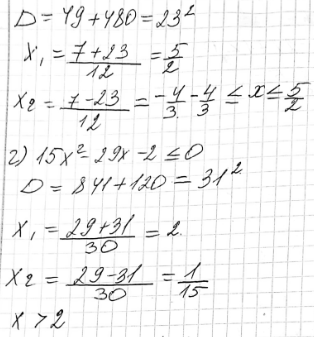 D = 49 + 480 = 23²
x₁ = (7 + 23)/12 = 5/2
x₂ = (7 - 23)/12 = -4/3 -4/3 ≤ x ≤ 5/2
г) 15x² - 29x - 2 ≤ 0
D = 841 + 120 = 31²
x₁ = (29 + 31)/30 = 2
x₂ = (29 - 31)/30 = 1/15
x > 2